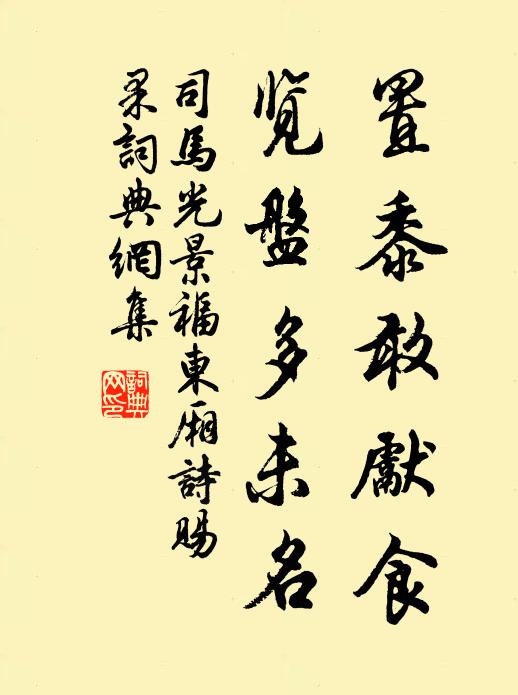 置黍敢獻食
覽盤多未名
司馬光景福東厢詩賜
果詞典網集
詞典
网印